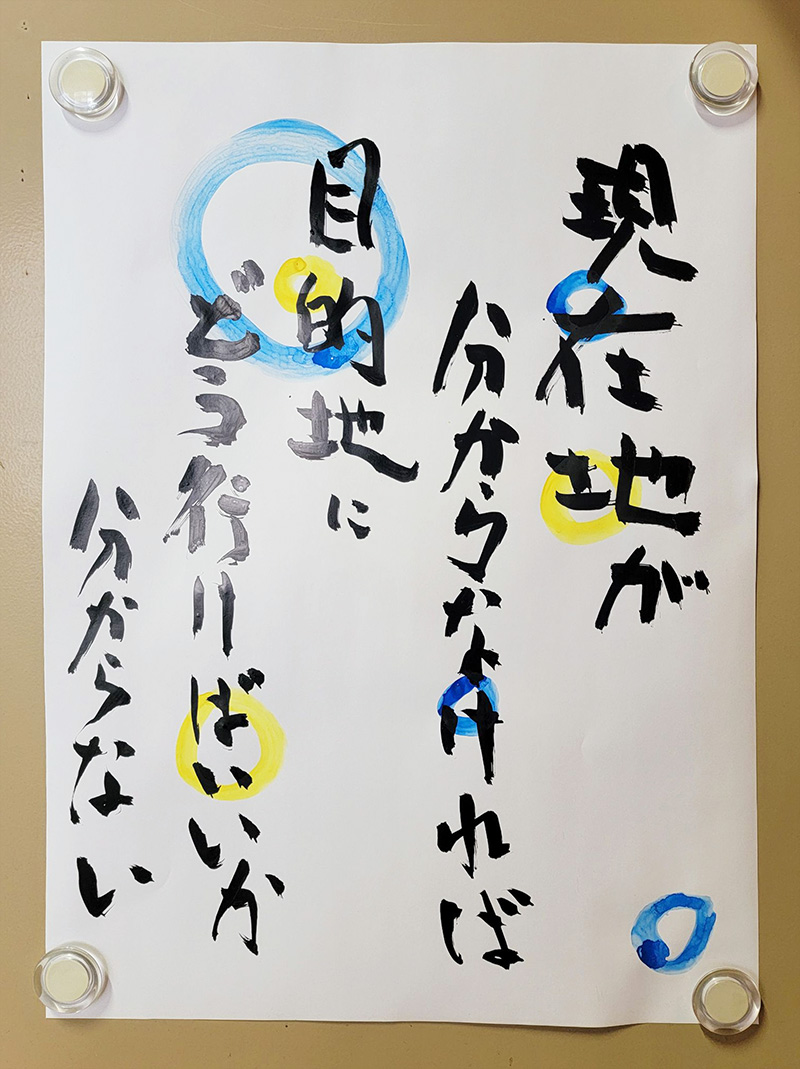 現在地が
分からなければ
目的地に
どう行けばいいか
分からない